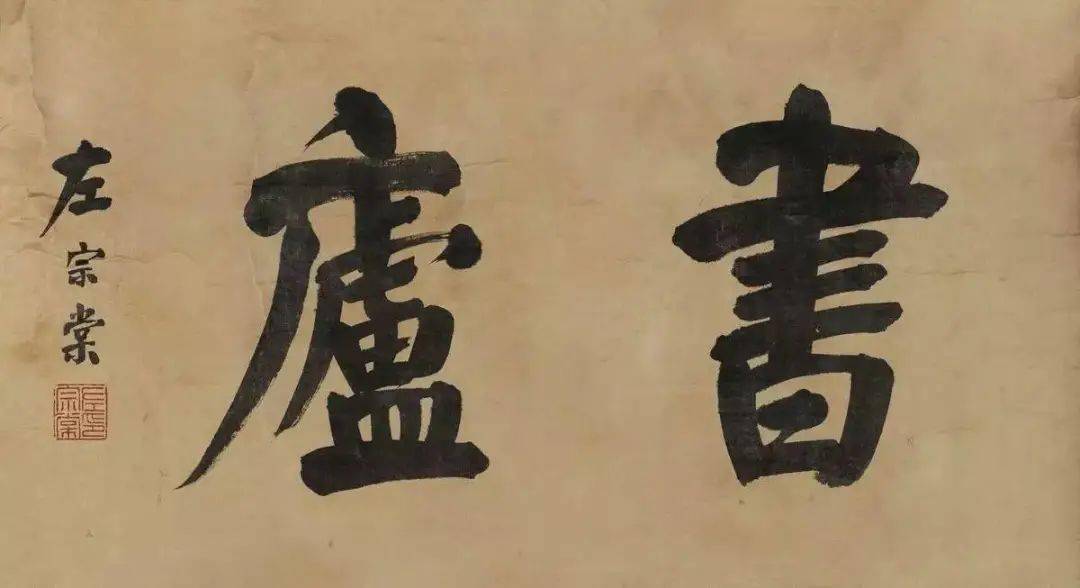 書廬
左宗棠
左宗棠印